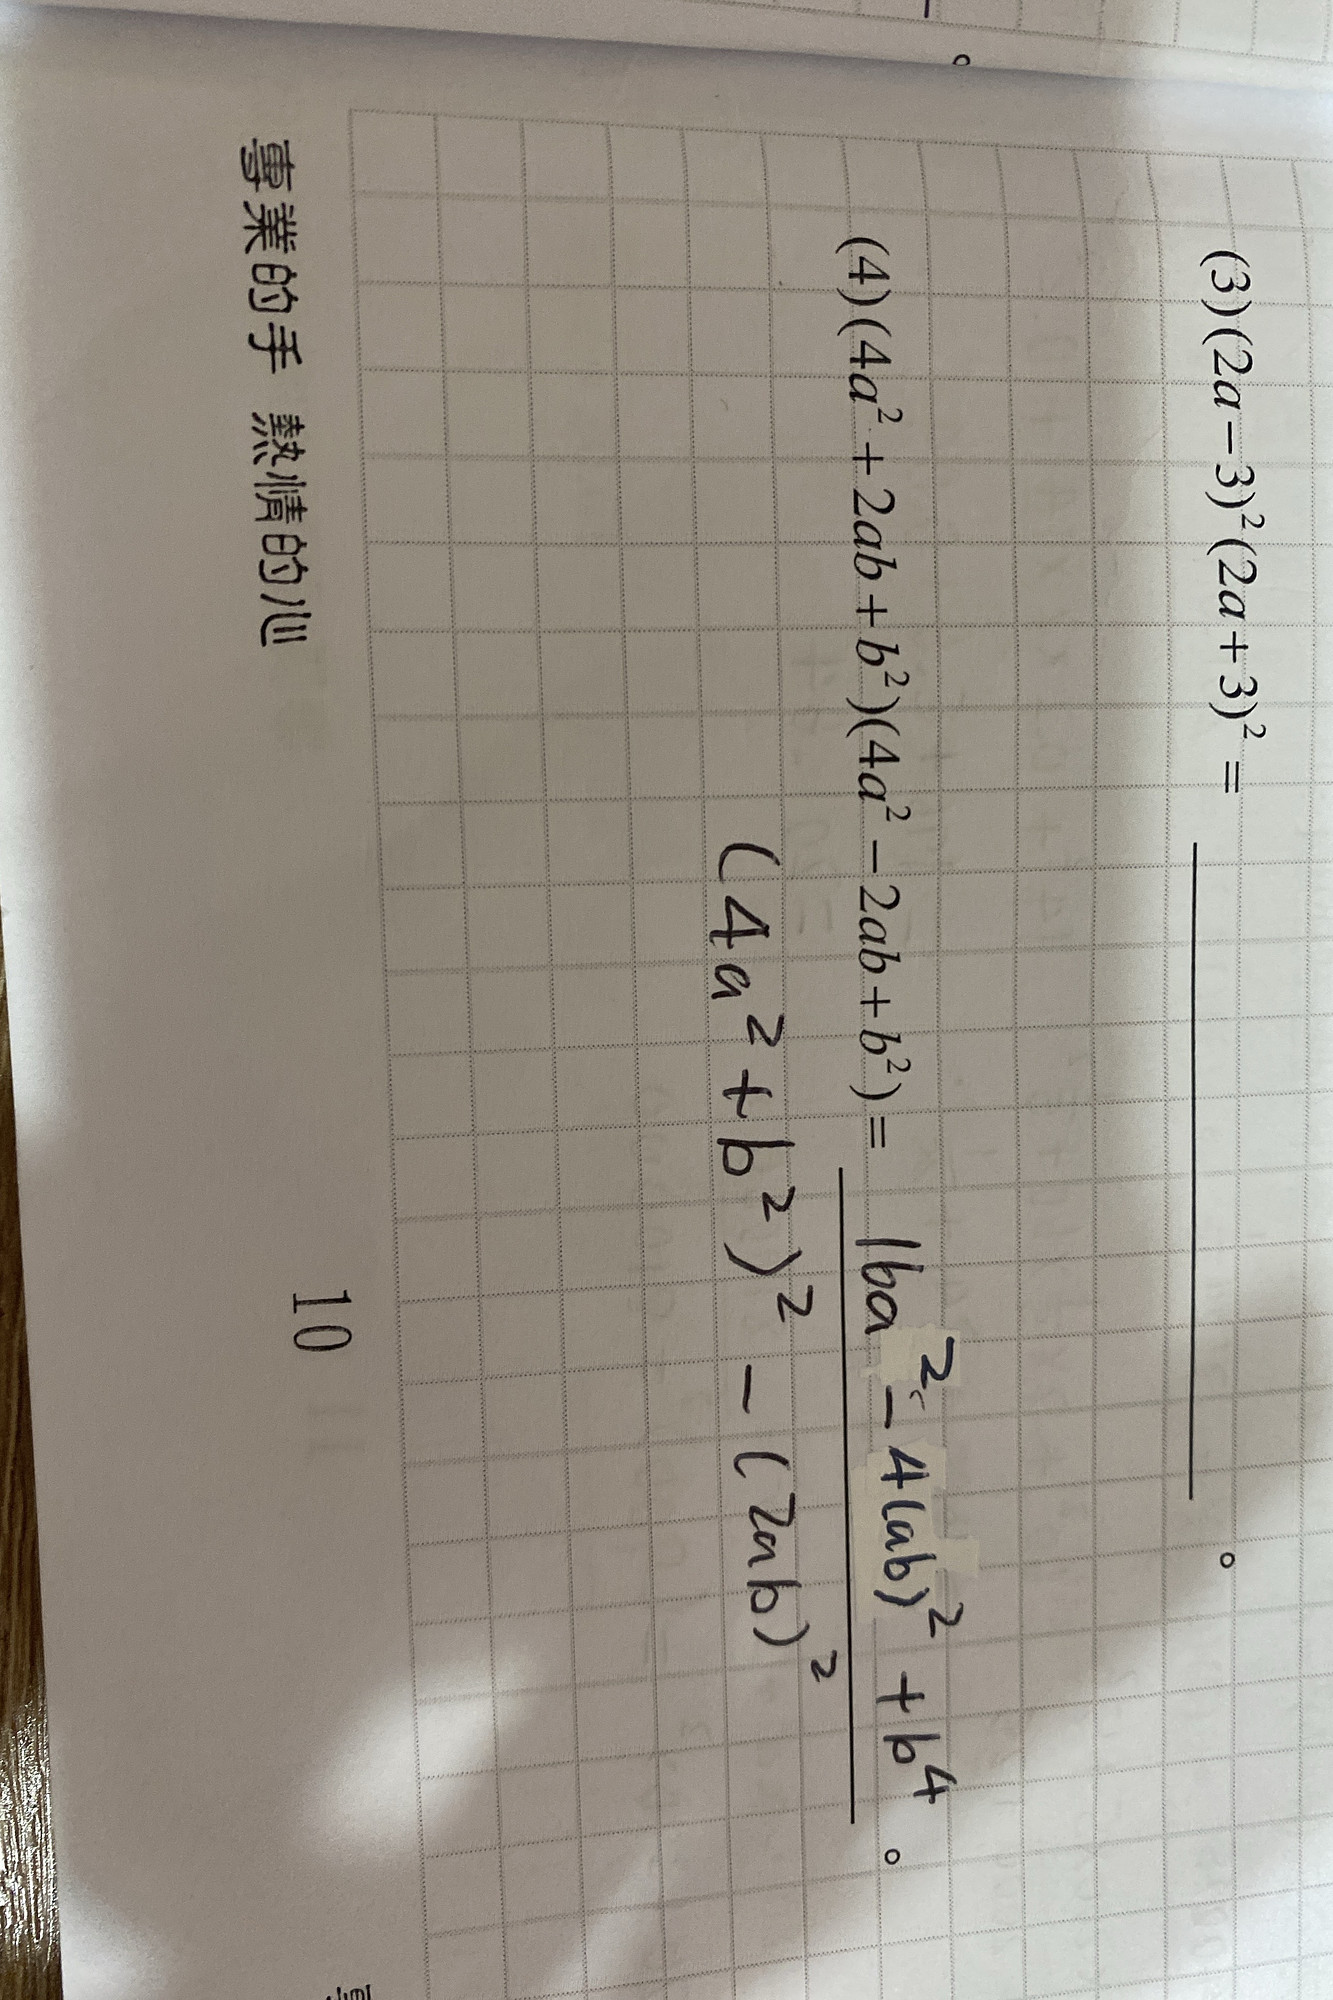 (3)(2a-3)²(2a+3)² = ________ 。
(4)(4a²+2ab+b²)(4a²-2ab+b²) = 16a²-4(ab)²+b⁴ 。
(4a²+b²)²-(2ab)²
專業的手 熱情的心
10